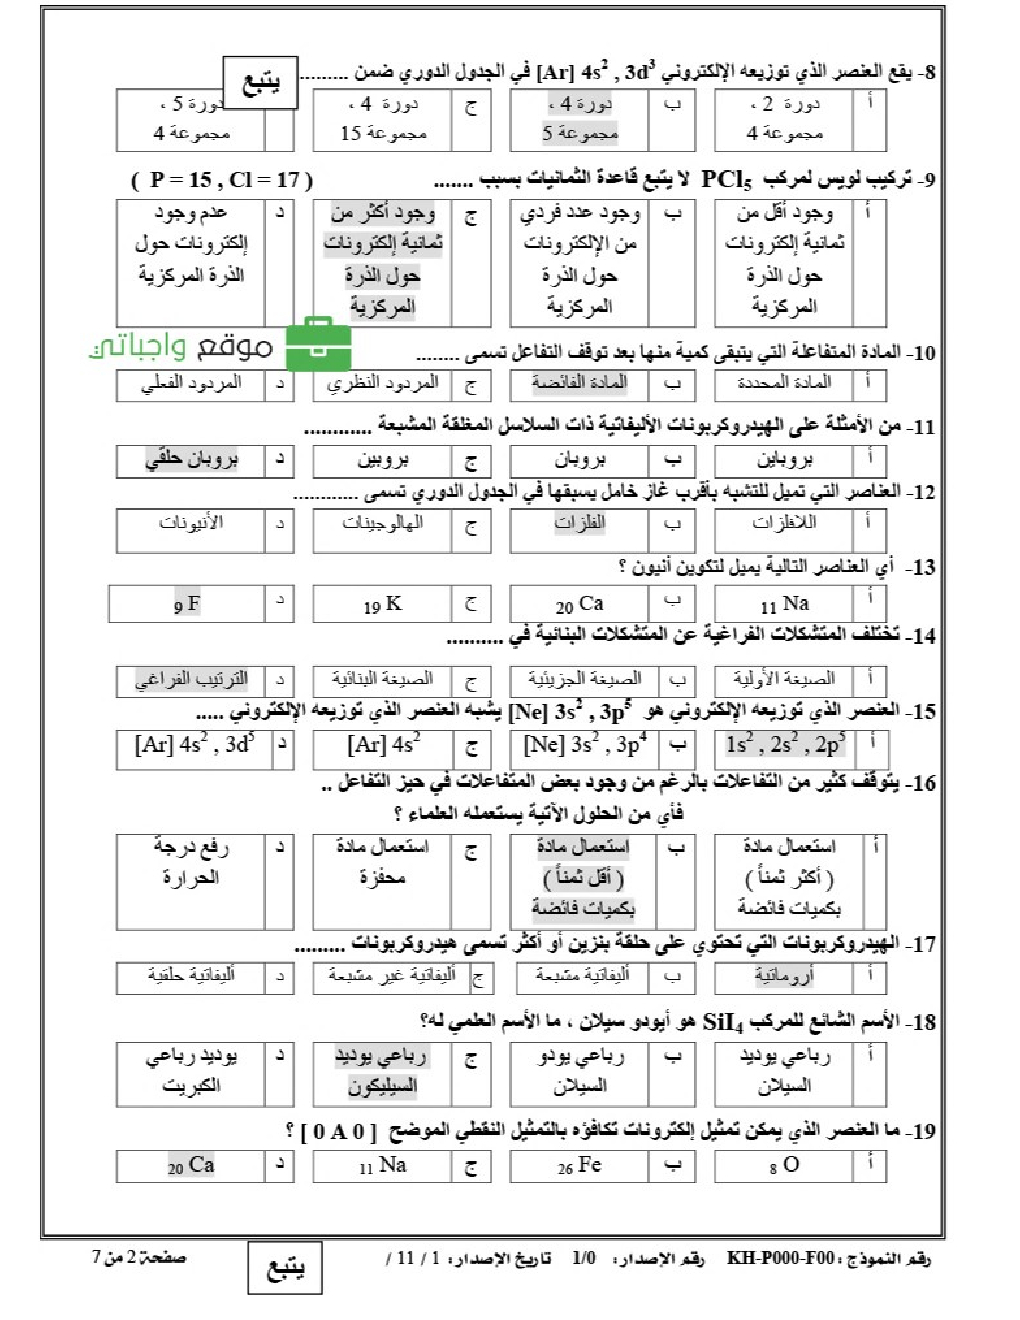 8- يقع العنصر الذي توزيعه الإلكتروني [Ar] 4s² , 3d³ في الجدول الدوري ضمن .........
يتبع
أ دورة 2 ، مجموعة 4 ب دورة 4 ، مجموعة 5 ج دورة 4 ، مجموعة 15 دورة 5 ، مجموعة 4
9- تركيب لويس لمركب PCl₅ لا يتبع قاعدة الثمانيات بسبب ....... ( P = 15 , Cl = 17 )
أ وجود أقل من ثمانية إلكترونات حول الذرة المركزية ب وجود عدد فردي من الإلكترونات حول الذرة المركزية ج وجود أكثر من ثمانية إلكترونات حول الذرة المركزية د عدم وجود إلكترونات حول الذرة المركزية
موقع واجباتي
10- المادة المتفاعلة التي يتبقى كمية منها بعد توقف التفاعل تسمى ........
أ المادة المحددة ب المادة الفائضة ج المردود النظري د المردود الفعلي
11- من الأمثلة على الهيدروكربونات الأليفاتية ذات السلاسل المغلقة المشبعة ............
أ بروباين ب بروبان ج بروبين د بروبان حلقي
12- العناصر التي تميل للتشبه بأقرب غاز خامل يسبقها في الجدول الدوري تسمى ............
أ اللافلزات ب الفلزات ج الهالوجينات د الأنيونات
13- أي العناصر التالية يميل لتكوين أنيون ؟
أ ₁₁ Na ب ₂₀ Ca ج ₁₉ K د ₉ F
14- تختلف المتشكلات الفراغية عن المتشكلات البنائية في ..........
أ الصيغة الأولية ب الصيغة الجزيئية ج الصيغة البنائية د الترتيب الفراغي
15- العنصر الذي توزيعه الإلكتروني هو [Ne] 3s² , 3p⁵ يشبه العنصر الذي توزيعه الإلكتروني .....
أ 1s² , 2s² , 2p⁵ ب [Ne] 3s² , 3p⁴ ج [Ar] 4s² د [Ar] 4s² , 3d⁵
16- يتوقف كثير من التفاعلات بالرغم من وجود بعض المتفاعلات في حيز التفاعل ..
فأي من الحلول الآتية يستعمله العلماء ؟
أ استعمال مادة ( أكثر ثمناً ) بكميات فائضة ب استعمال مادة ( أقل ثمناً ) بكميات فائضة ج استعمال مادة محفزة د رفع درجة الحرارة
17- الهيدروكربونات التي تحتوي على حلقة بنزين أو أكثر تسمى هيدروكربونات .........
أ أروماتية ب أليفاتية مشبعة ج أليفاتية غير مشبعة د أليفاتية حلقية
18- الأسم الشائع للمركب SiI₄ هو أيودو سيلان ، ما الأسم العلمي له؟
أ رباعي يوديد السيلان ب رباعي يودو السيلان ج رباعي يوديد السيليكون د يوديد رباعي الكبريت
19- ما العنصر الذي يمكن تمثيل إلكترونات تكافؤه بالتمثيل النقطي الموضح [ 0 A 0 ] ؟
أ ₈ O ب ₂₆ Fe ج ₁₁ Na د ₂₀ Ca
رقم النموذج : KH-P000-F00 رقم الإصدار: 1/0 تاريخ الإصدار: 1 / 11 / صفحة 2 من 7
يتبع